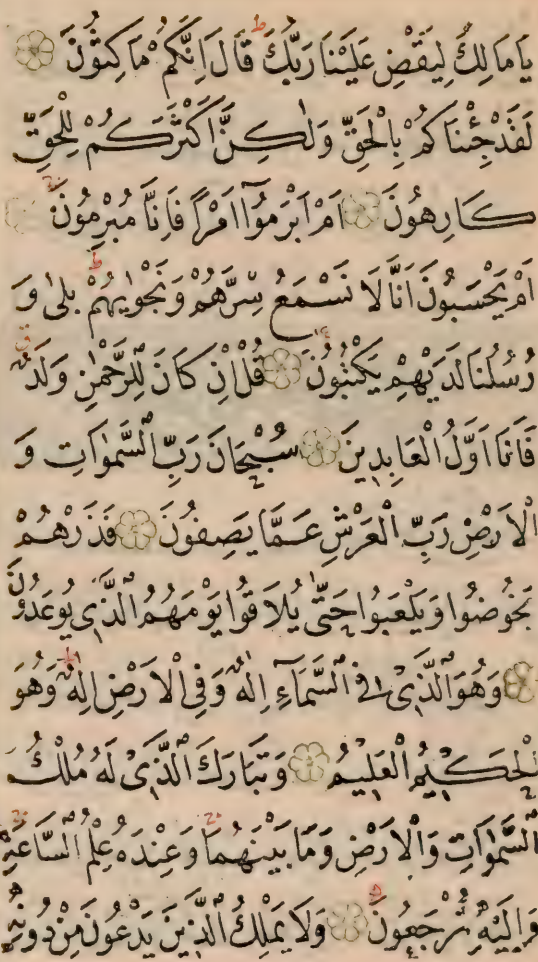 يَامَالِكُ لِيَقْضِ عَلَيْنَا رَبُّكَ قَالَ اِنَّكُمْ مَاكِثُونَ
لَقَدْ جِئْنَاكُمْ بِالْحَقِّ وَلٰكِنَّ اَكْثَرَكُمْ لِلْحَقِّ
كَارِهُونَ اَمْ اَبْرَمُوٓا اَمْرًا فَاِنَّا مُبْرِمُونَ
اَمْ يَحْسَبُونَ اَنَّا لَا نَسْمَعُ سِرَّهُمْ وَنَجْوٰيهُمْ بَلٰى وَ
رُسُلُنَا لَدَيْهِمْ يَكْتُبُونَ قُلْ اِنْ كَانَ لِلرَّحْمٰنِ وَلَدٌ
فَاَنَا اَوَّلُ الْعَابِدِينَ سُبْحَانَ رَبِّ السَّمٰوَاتِ وَ
الْاَرْضِ رَبِّ الْعَرْشِ عَمَّا يَصِفُونَ فَذَرْهُمْ
يَخُوضُوا وَيَلْعَبُوا حَتّٰى يُلَاقُوا يَوْمَهُمُ الَّذِى يُوعَدُونَ
وَهُوَ الَّذِى فِى السَّمَآءِ اِلٰهٌ وَفِى الْاَرْضِ اِلٰهٌ وَهُوَ
الْحَكِيمُ الْعَلِيمُ وَتَبَارَكَ الَّذِى لَهُ مُلْكُ
السَّمٰوَاتِ وَالْاَرْضِ وَمَا بَيْنَهُمَا وَعِنْدَهُ عِلْمُ السَّاعَةِ
وَاِلَيْهِ تُرْجَعُونَ وَلَا يَمْلِكُ الَّذِينَ يَدْعُونَ مِنْ دُونِهِ